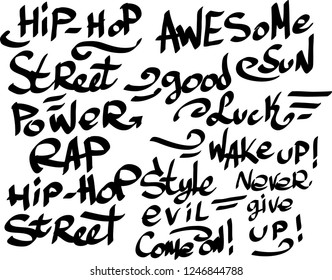 HiP-HoP
STreeT
POWeR
RAP
HiP-HoP
STReeT
AWESoMe
good SUN
Luck
WAKe uP!
Style
evil
Come on!
Never
give
UP!
shutterstock.com · 1246844788